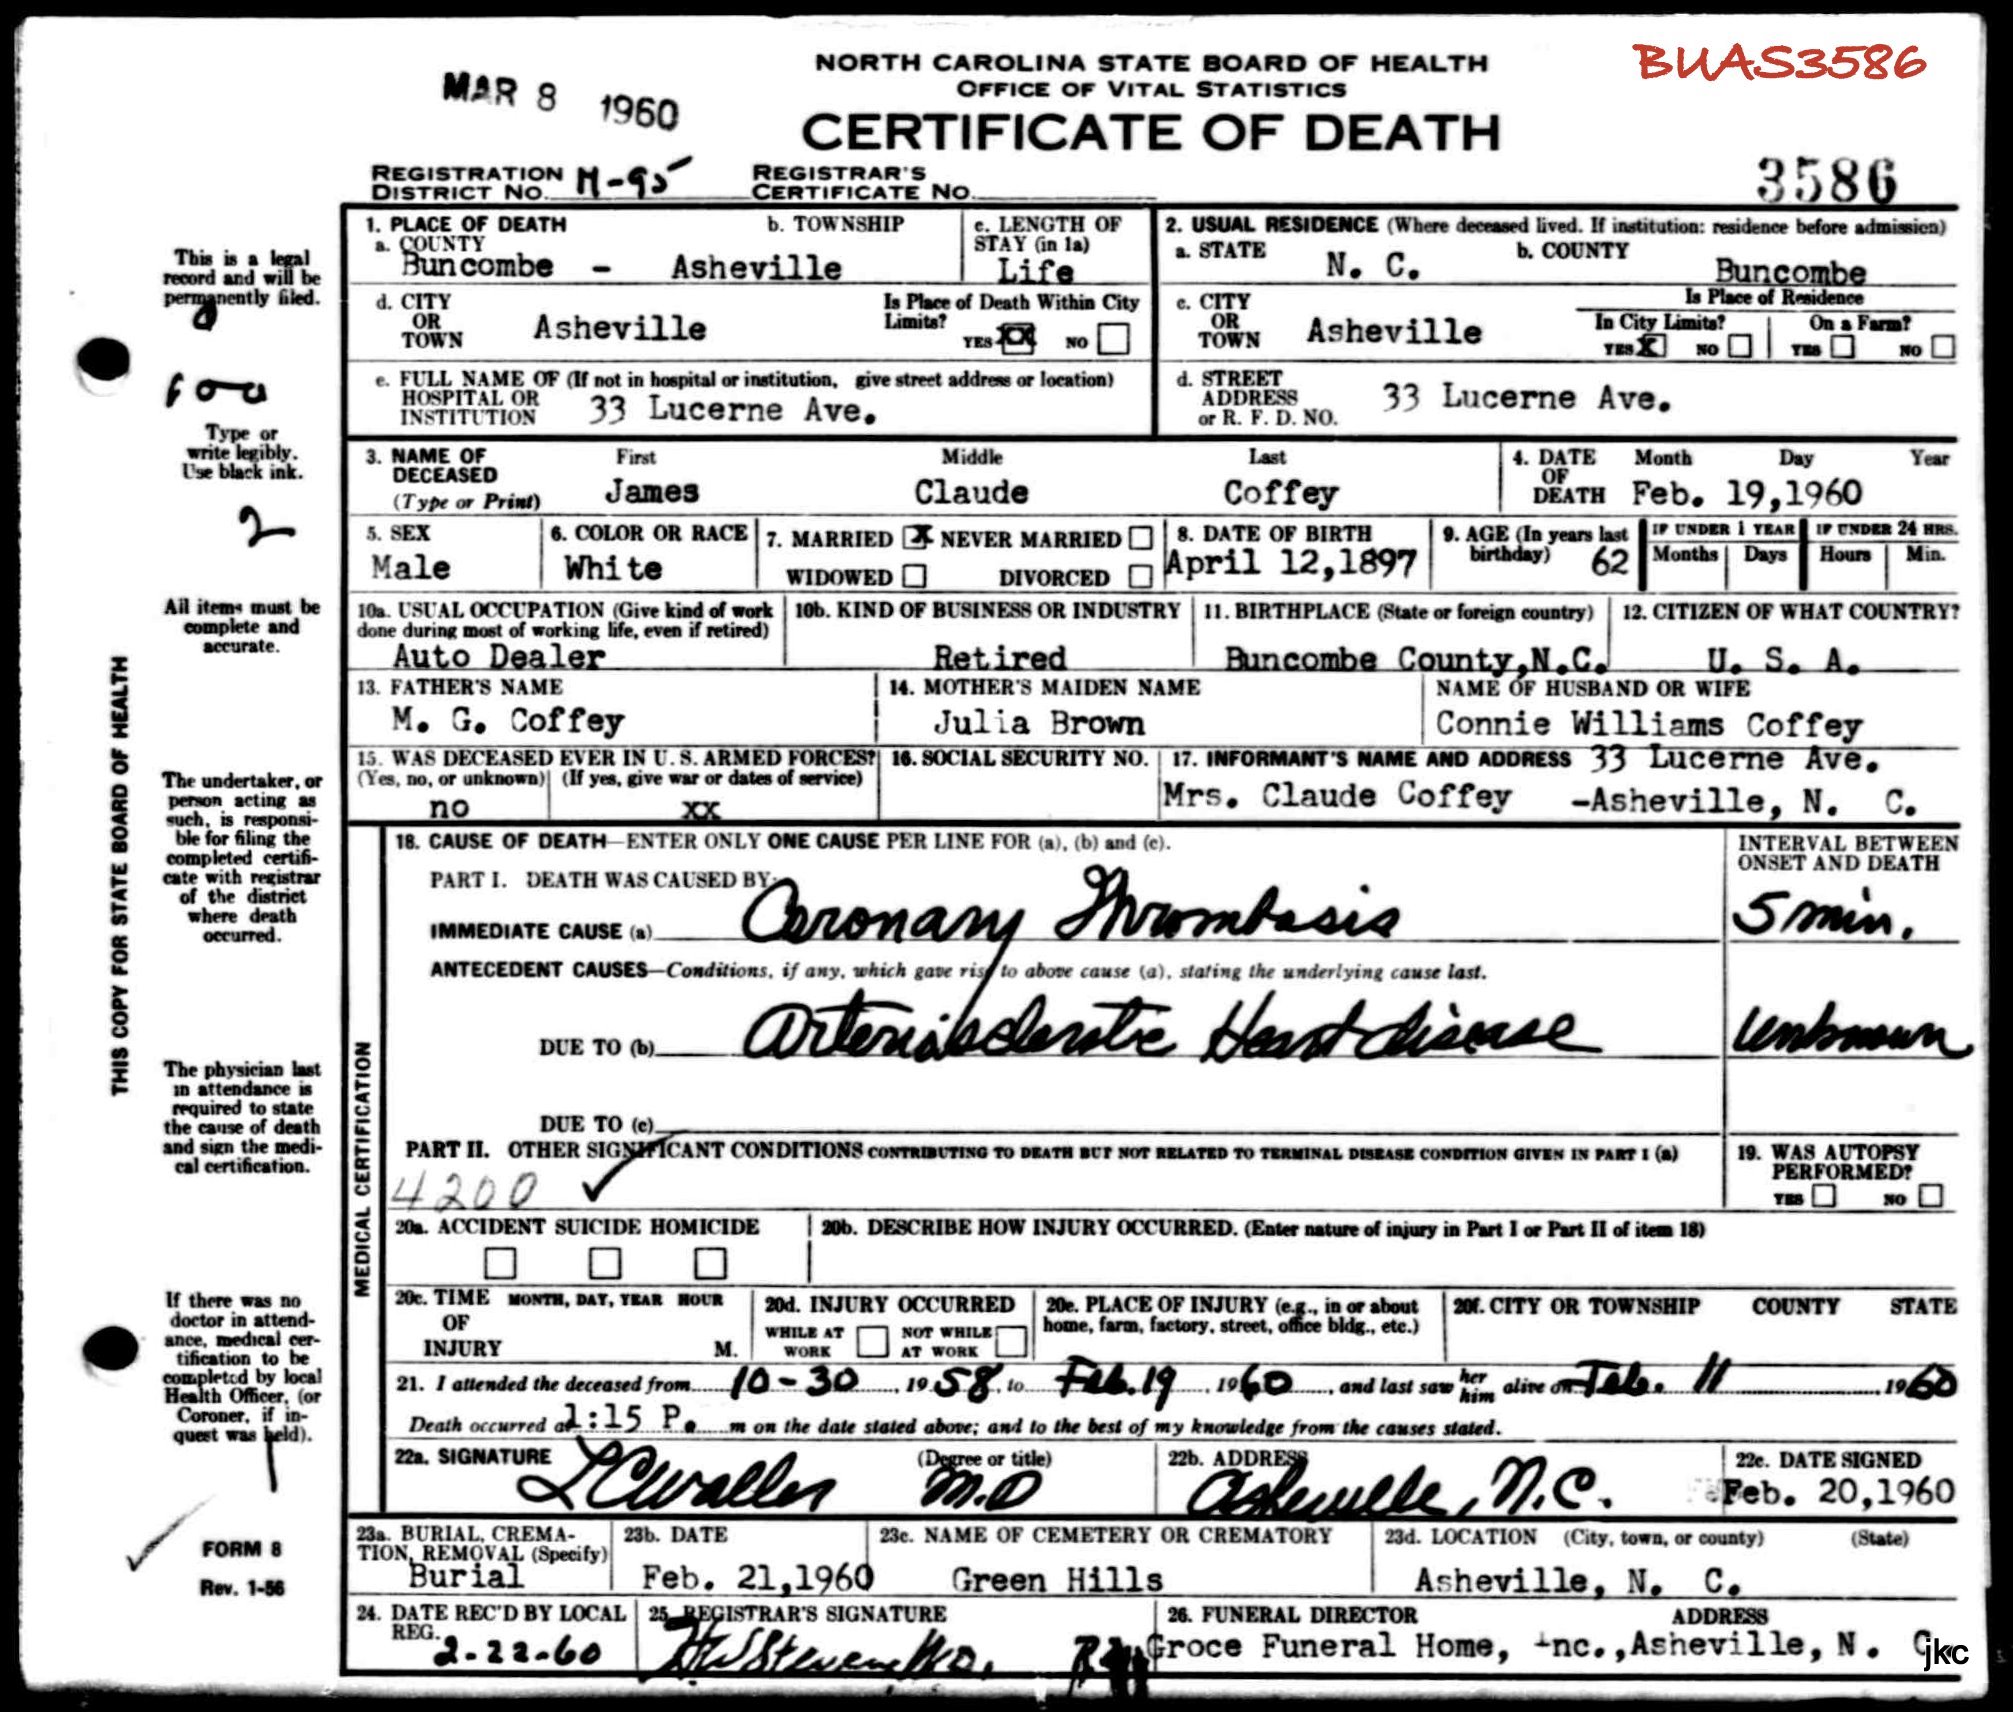 BUAS3586
NORTH CAROLINA STATE BOARD OF HEALTH
OFFICE OF VITAL STATISTICS
MAR 8 1960
CERTIFICATE OF DEATH
REGISTRATION DISTRICT NO. M-95 REGISTRAR'S CERTIFICATE NO.
3586
THIS COPY FOR STATE BOARD OF HEALTH
This is a legal
record and will be
permanently filed.
600
Type or
write legibly.
Use black ink.
2
All items must be
complete and
accurate.
The undertaker, or
person acting as
such, is responsi-
ble for filing the
completed certifi-
cate with registrar
of the district
where death
occurred.
The physician last
in attendance is
required to state
the cause of death
and sign the medi-
cal certification.
If there was no
doctor in attend-
ance, medical cer-
tification to be
completed by local
Health Officer, (or
Coroner, if in-
quest was held).
FORM 8
Rev. 1-56
1. PLACE OF DEATH
a. COUNTY b. TOWNSHIP c. LENGTH OF STAY (in 1a)
Buncombe - Asheville Life
2. USUAL RESIDENCE (Where deceased lived. If institution: residence before admission)
a. STATE N. C. b. COUNTY Buncombe
d. CITY OR TOWN Asheville Is Place of Death Within City Limits? YES XX NO
c. CITY OR TOWN Asheville Is Place of Residence In City Limits? YES X NO On a Farm? YES NO
e. FULL NAME OF (If not in hospital or institution, give street address or location)
HOSPITAL OR INSTITUTION 33 Lucerne Ave.
d. STREET ADDRESS or R. F. D. NO. 33 Lucerne Ave.
3. NAME OF DECEASED (Type or Print) First Middle Last
James Claude Coffey
4. DATE OF DEATH Month Day Year
Feb. 19,1960
5. SEX Male
6. COLOR OR RACE White
7. MARRIED X NEVER MARRIED
WIDOWED DIVORCED
8. DATE OF BIRTH April 12,1897
9. AGE (In years last birthday) 62
IF UNDER 1 YEAR Months Days
IF UNDER 24 HRS. Hours Min.
10a. USUAL OCCUPATION (Give kind of work done during most of working life, even if retired)
Auto Dealer
10b. KIND OF BUSINESS OR INDUSTRY
Retired
11. BIRTHPLACE (State or foreign country)
Buncombe County,N.C.
12. CITIZEN OF WHAT COUNTRY?
U. S. A.
13. FATHER'S NAME
M. G. Coffey
14. MOTHER'S MAIDEN NAME
Julia Brown
NAME OF HUSBAND OR WIFE
Connie Williams Coffey
15. WAS DECEASED EVER IN U. S. ARMED FORCES?
(Yes, no, or unknown) (If yes, give war or dates of service)
no xx
16. SOCIAL SECURITY NO.
17. INFORMANT'S NAME AND ADDRESS 33 Lucerne Ave.
Mrs. Claude Coffey -Asheville, N. C.
MEDICAL CERTIFICATION
18. CAUSE OF DEATH—ENTER ONLY ONE CAUSE PER LINE FOR (a), (b) and (c).
INTERVAL BETWEEN ONSET AND DEATH
PART I. DEATH WAS CAUSED BY:
IMMEDIATE CAUSE (a) Coronary Thrombosis 5 min.
ANTECEDENT CAUSES—Conditions, if any, which gave rise to above cause (a), stating the underlying cause last.
DUE TO (b) Arteriosclerotic Heart disease Unknown
DUE TO (c)
PART II. OTHER SIGNIFICANT CONDITIONS CONTRIBUTING TO DEATH BUT NOT RELATED TO TERMINAL DISEASE CONDITION GIVEN IN PART I (a)
4200
19. WAS AUTOPSY PERFORMED? YES NO
20a. ACCIDENT SUICIDE HOMICIDE
20b. DESCRIBE HOW INJURY OCCURRED. (Enter nature of injury in Part I or Part II of item 18)
20c. TIME OF INJURY MONTH, DAY, YEAR HOUR M.
20d. INJURY OCCURRED WHILE AT WORK NOT WHILE AT WORK
20e. PLACE OF INJURY (e.g., in or about home, farm, factory, street, office bldg., etc.)
20f. CITY OR TOWNSHIP COUNTY STATE
21. I attended the deceased from 10-30, 1958, to Feb. 19, 1960, and last saw her him alive on Feb. 11 1960
Death occurred at 1:15 P. m on the date stated above; and to the best of my knowledge from the causes stated.
22a. SIGNATURE (Degree or title)
L C Waller M.D
22b. ADDRESS
Asheville, N.C.
22c. DATE SIGNED
Feb. 20,1960
23a. BURIAL, CREMATION, REMOVAL (Specify)
Burial
23b. DATE
Feb. 21,1960
23c. NAME OF CEMETERY OR CREMATORY
Green Hills
23d. LOCATION (City, town, or county) (State)
Asheville, N. C.
24. DATE REC'D BY LOCAL REG.
2-22-60
25. REGISTRAR'S SIGNATURE
H W Stevens M.D.
26. FUNERAL DIRECTOR ADDRESS
Groce Funeral Home, Inc.,Asheville, N. C.
jkc